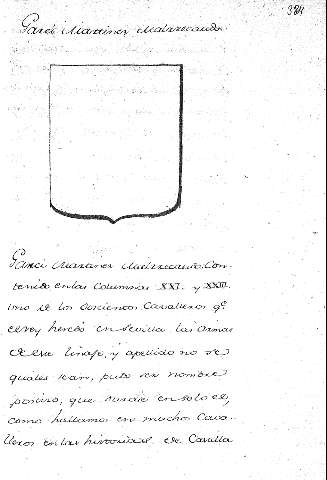 384
Garci Martinez Malrrecaudo.
Garci Martinez Malrrecaudo. Con-
tenido en las Columnas XXI. y XXIII.
uno de los doscientos Cavalleros qe.
el rey heredó en Sevilla las Armas
de este linaje, y apellido no sé
quáles sean, pudo ser nombre
postizo, que en solo el,
como hallamos en muchos Cava-
lleros en las historias de Castilla